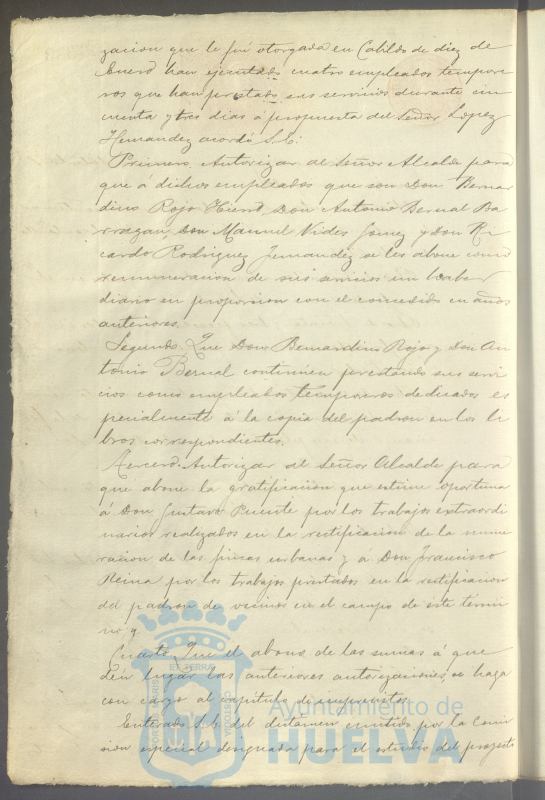 zacion que le fue otorgada en Cabildo de diez de
Enero han ejecutado cuatro empleados tempore
ros que han prestado sus servicios durante cin
cuenta y tres dias á propuesta del Señor Lopez
Hernandez acordó S.E:
Primero. Autorizar al Señor Alcalde para
que á dichos empleados que son Don Bernar
dino Rojo Hierro, Don Antonio Bernal Ba
rragan, Don Manuel Vides Gomez y Don Ri
cardo Rodriguez Fernandez se les abone como
remuneracion de sus servicios un haber
diario en proporcion con el concedido en años
anteriores.
Segundo. Que Don Bernardino Rojo y Don An
tonio Bernal continuen prestando sus servi
cios como empleados temporeros dedicados es
pecialmente á la copia del padron en los li
bros correspondientes.
Tercero. Autorizar al Señor Alcalde para
que abone la gratificacion que estime oportuna
á Don Gustavo Puente por los trabajos extraordi
narios realizados en la rectificacion de la nume
racion de las fincas urbanas y á Don Francisco
Reina por los trabajos prestados en la rectificacion
del padron de vecinos en el campo de este termi
no y
Cuarto. Que el abono de las sumas á que
den lugar las anteriores autorizaciones, se haga
con cargo al capitulo de imprevistos
Enterado S.E. del dictamen emitido por la Comi
sion especial designada para el estudio del proyecto
Ayuntamiento de
HUELVA